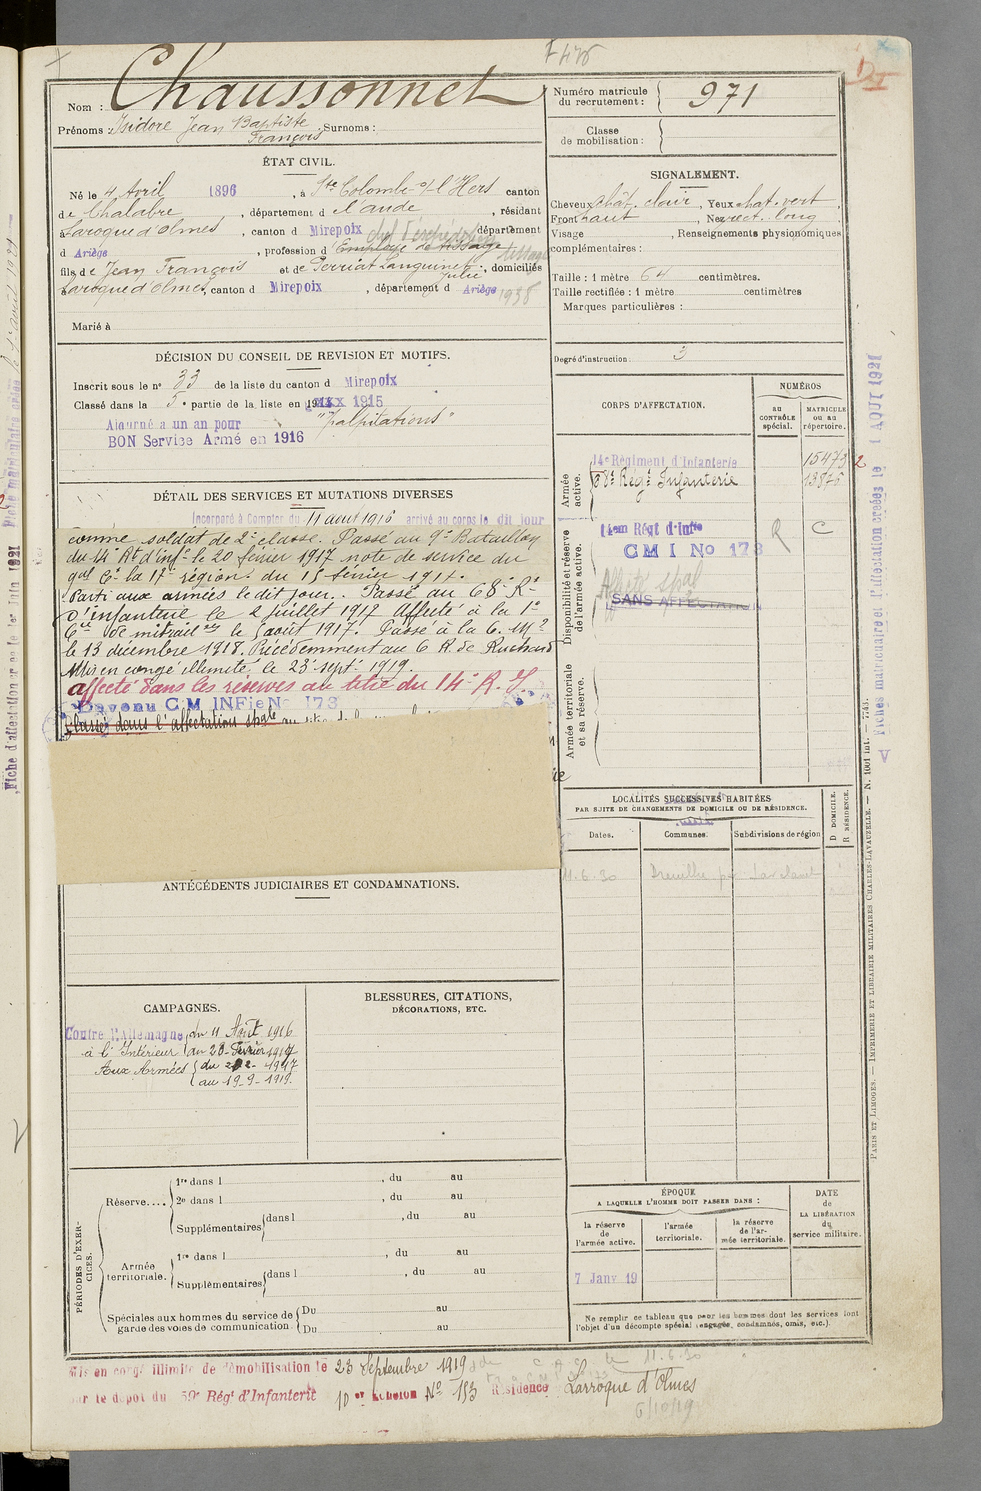 Nom : Chaussonnet
Prénoms : Isidore Jean Baptiste François Surnoms :
ÉTAT CIVIL.
Né le 4 Avril 1896, à Ste Colombe s/ l'Hers canton
de Chalabre, département d l'aude, résidant
à Laroque d'Olmes, canton d Mirepoix département
d Ariège, profession d Employé de tissage
fils de Jean François et de Perriat Languinet Julie, domiciliés
à Laroque d'Olmes, canton d Mirepoix, département d Ariège 1938
Marié à
DÉCISION DU CONSEIL DE REVISION ET MOTIFS.
Inscrit sous le no 33 de la liste du canton d Mirepoix
Classé dans la 5e partie de la liste en 1915
Ajourné a un an pour "palpitations"
BON Service Armé en 1916
DÉTAIL DES SERVICES ET MUTATIONS DIVERSES
Incorporé à Compter du 11 aout 1916 arrivé au corps le dit jour
comme soldat de 2e classe. Passé au 9e Bataillon
du 14e Rt d'inf. le 20 février 1917 note de service du
gal Ct la 17e région. du 15 février 1917.
Parti aux armées le dit jour. Passé au 68e Rt
d'infanterie le 2 juillet 1917 Affecté à la 1e
Cie de mitrailses le août 1917. Passé à la C. M 2
le 13 décembre 1918. Précédemment au C A. de Ruchard
Mis en congé illimité le 23 sept. 1919.
affecté dans les réserves au titre du 14e R. I
Devenu C M INFie No 173
Classé dans l'affectation spale au titre
ANTÉCÉDENTS JUDICIAIRES ET CONDAMNATIONS.
CAMPAGNES.
Contre l'Allemagne du 11 Août 1916
à l'Intérieur au 20 Février 1917
Aux Armées du 21-2-1917
au 19-9-1919.
BLESSURES, CITATIONS,
DÉCORATIONS, ETC.
PÉRIODES D'EXERCICES.
Réserve.... 1re dans l , du au
2e dans l , du au
Supplémentaires dans l , du au
Armée territoriale. 1re dans l , du au
Supplémentaires dans l , du au
Spéciales aux hommes du service de garde des voies de communication Du au
Du au
Numéro matricule
du recrutement : 971
Classe
de mobilisation :
SIGNALEMENT.
Cheveux chât. clair, Yeux chat. vert,
Front haut, Nez rect. long,
Visage , Renseignements physionomiques
complémentaires :
Taille : 1 mètre 64 centimètres.
Taille rectifiée : 1 mètre centimètres
Marques particulières :
Degré d'instruction : 3
CORPS D'AFFECTATION.
NUMÉROS
au CONTRÔLE spécial.
MATRICULE ou au répertoire.
Armée active.
14e Régiment d'Infanterie 15473
68e Régt Infanterie 13876
Disponibilité et réserve de l'armée active.
14em Régt d'Infie R C
C M I No 173
Affecté spal
SANS AFFECTATION
Armée territoriale et sa réserve.
LOCALITÉS SUCCESSIVES HABITÉES
PAR SUITE DE CHANGEMENTS DE DOMICILE OU DE RÉSIDENCE.
Dates. Communes. Subdivisions de région
D DOMICILE. R RÉSIDENCE.
11.6.30 Dreuilhe par Lavelanet
ÉPOQUE
A LAQUELLE L'HOMME DOIT PASSER DANS :
la réserve de l'armée active.
l'armée territoriale.
la réserve de l'armée territoriale.
DATE de LA LIBÉRATION du service militaire.
7 Janv 19
Ne remplir ce tableau que pour les hommes dont les services font
l'objet d'un décompte spécial (engagés, condamnés, omis, etc.).
Mis en congé illimité de démobilisation le 23 Septembre 1919
par le dépot du 59e Régt d'Infanterie 10e Echelon No 153 Résidence Larroque d'Olmes
11-6-30
6/10/19
Fiches matriculaire et d'affectation créées le 1 AOUT 1921
PARIS ET LIMOGES. — IMPRIMERIE ET LIBRAIRIE MILITAIRES CHARLES-LAVAUZELLE. — N. 1001 int. — 7743.